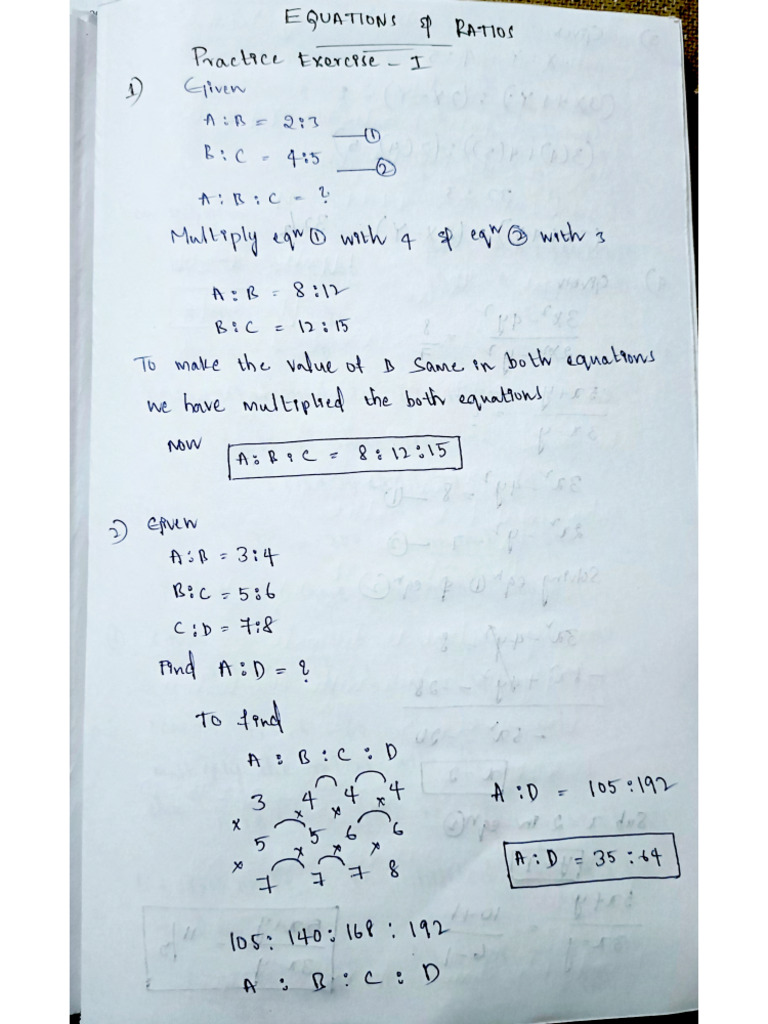 EQUATIONS & RATIOS
Practice Exercise - I
1) Given
A:B = 2:3 —①
B:C = 4:5 —②
A:B:C = ?
Multiply eqn ① with 4 & eqn ② with 3
A:B = 8:12
B:C = 12:15
To make the value of B same in both equations
we have multiplied the both equations
now A:B:C = 8:12:15
2) Given
A:B = 3:4
B:C = 5:6
C:D = 7:8
Find A:D = ?
To find
A : B : C : D
3 4 4 4
x x x x
5 5 6 6
x x x x
7 7 7 8
A:D = 105:192
A:D = 35:64
105: 140: 168: 192
A : B : C : D